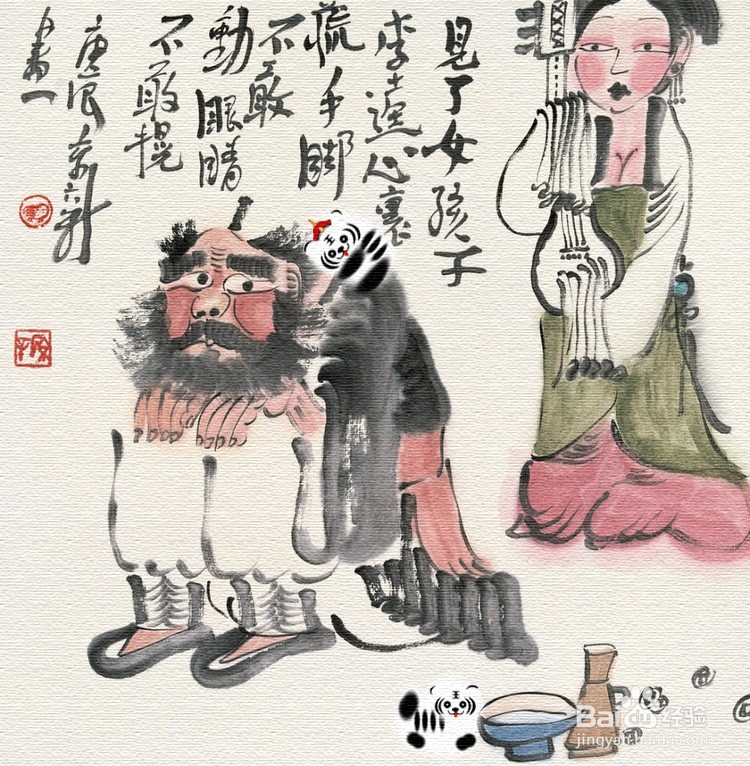 見了女孩子
李逵心裏
慌手脚
不敢
動眼睛
不敢
庚辰
畫
Baidu经验
jingyan.baidu.com